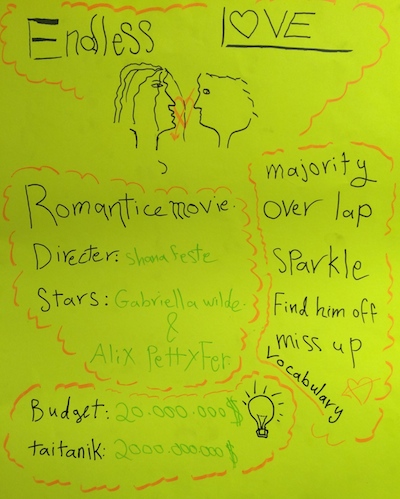 Endless LOVE
Romantice movie.
Directer: shana feste
Stars: Gabriella wilde.
&
Alix PettyFer
majority
over lap
sparkle
Find him off
miss up
Vocabulary
Budget: 20.000.000$
taitanik: 2000.000.000$